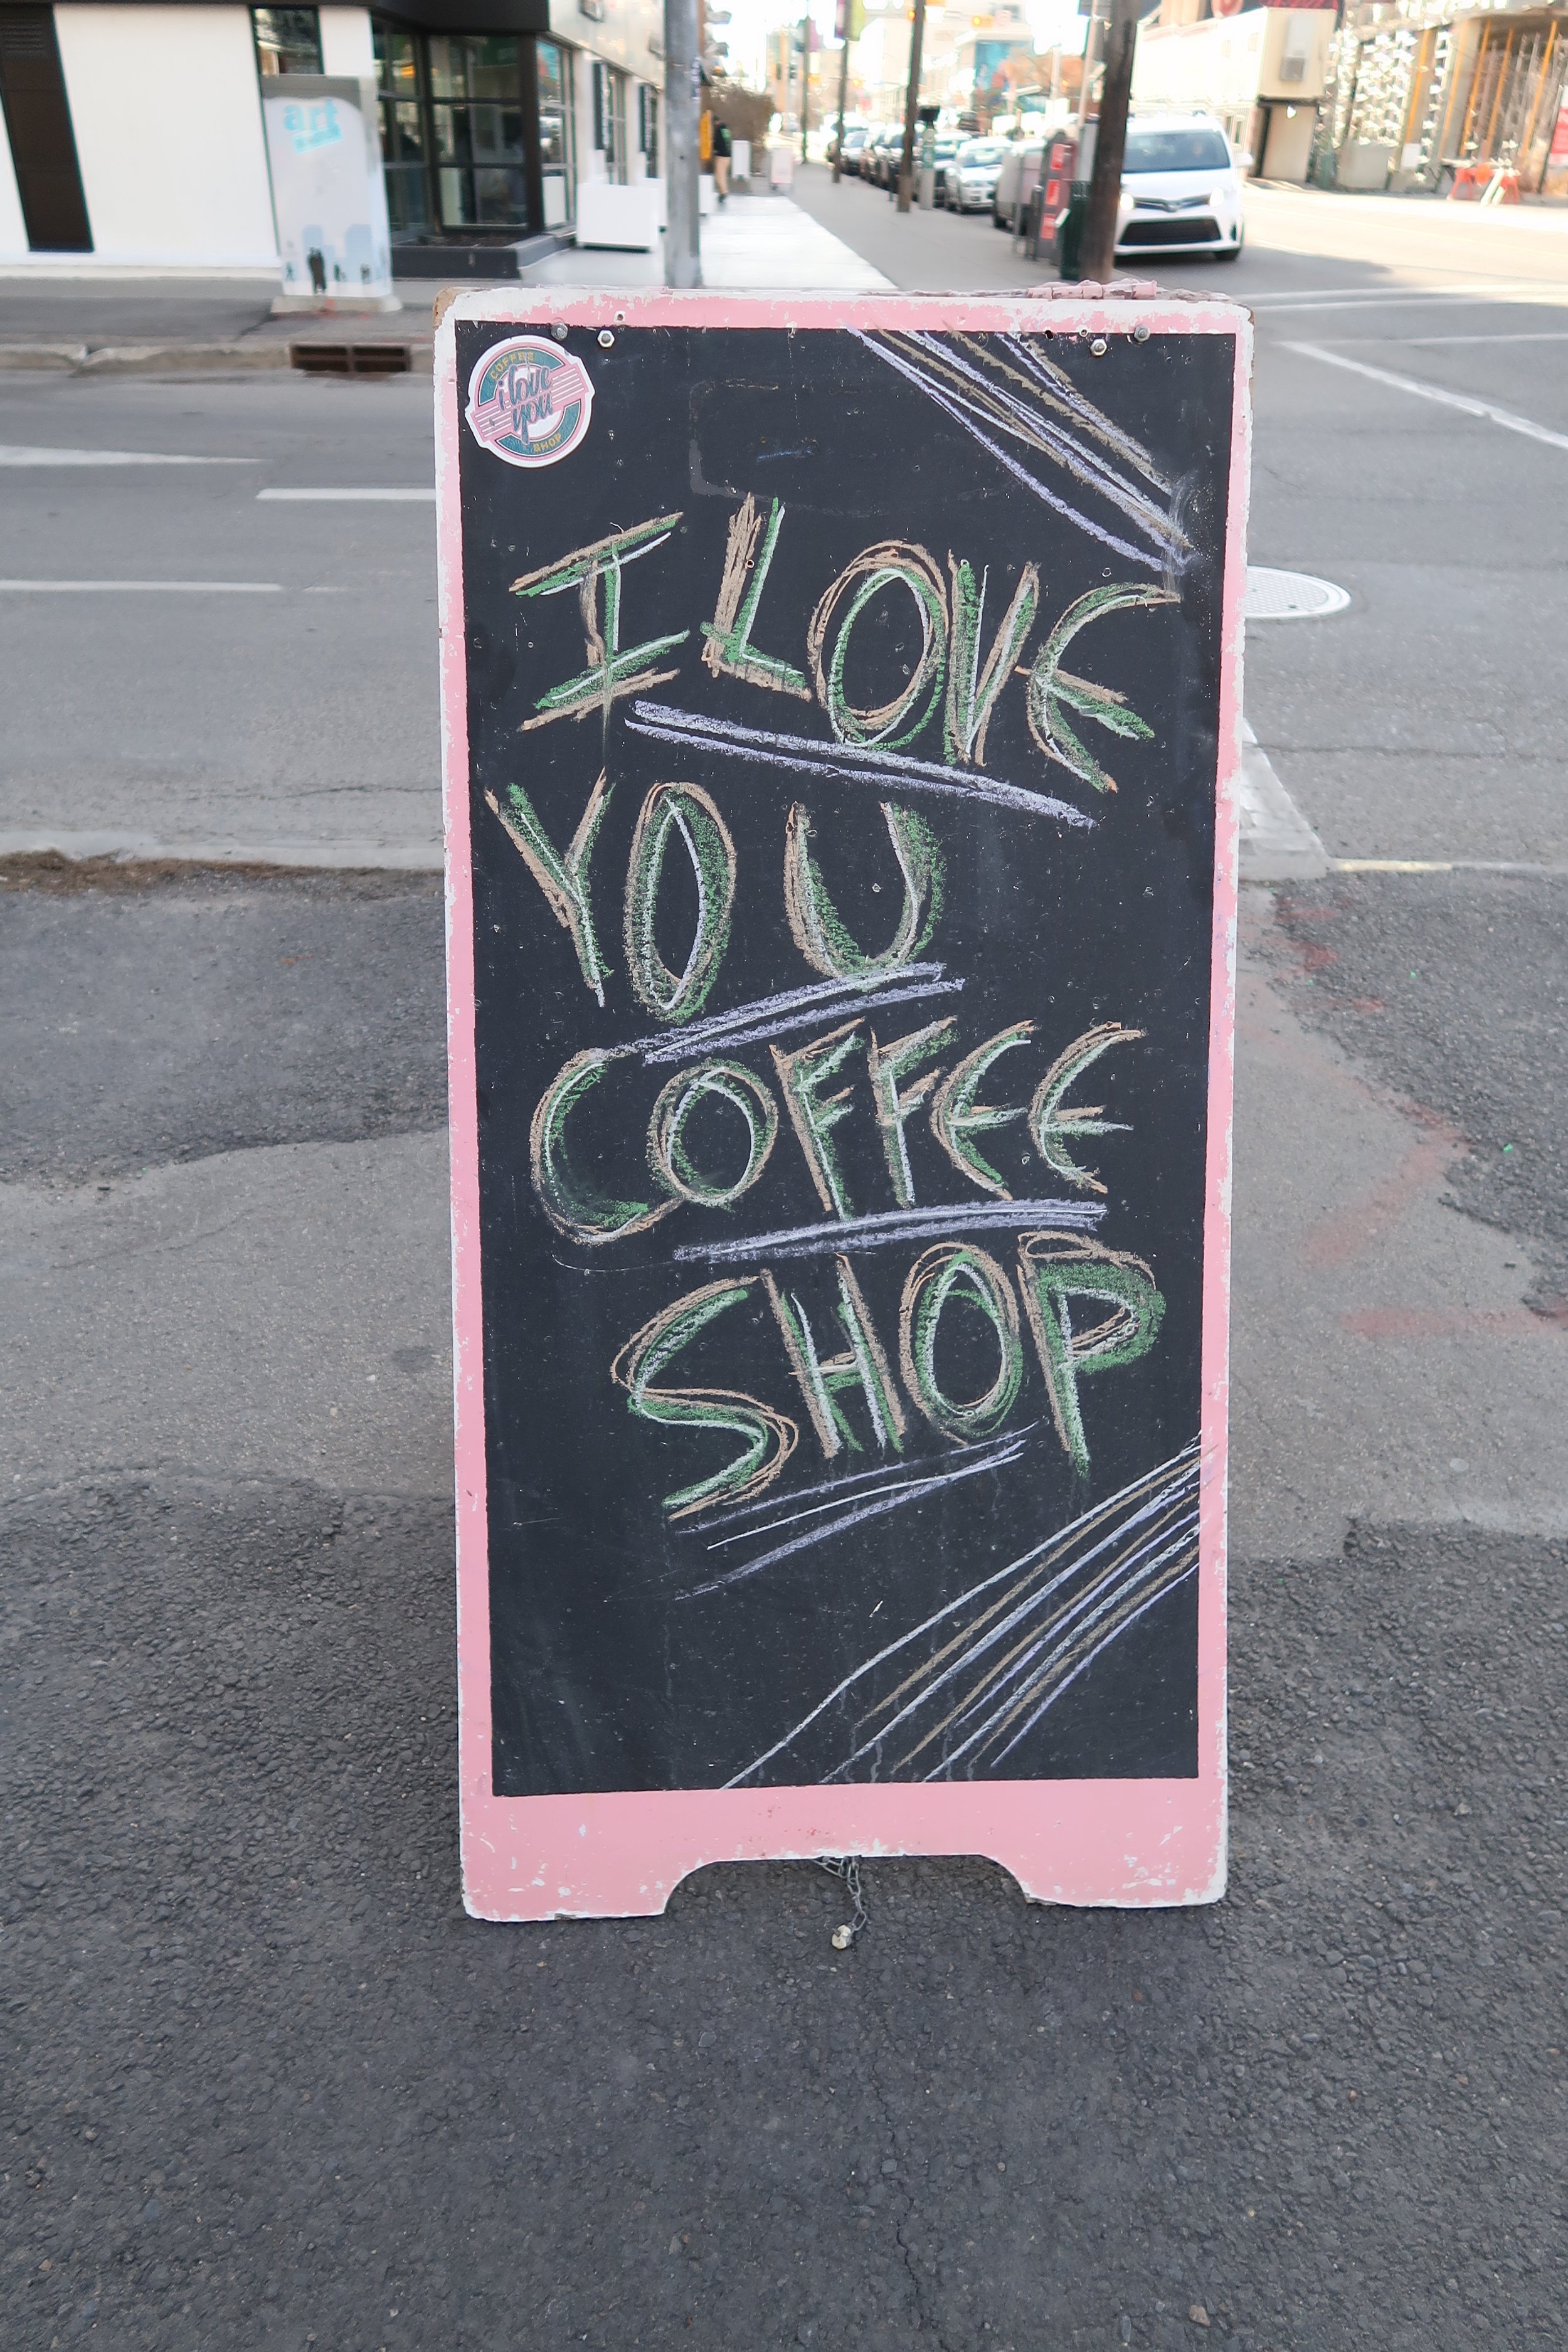 art
COFFEE
i love
you
SHOP
I LOVE
YOU
COFFEE
SHOP